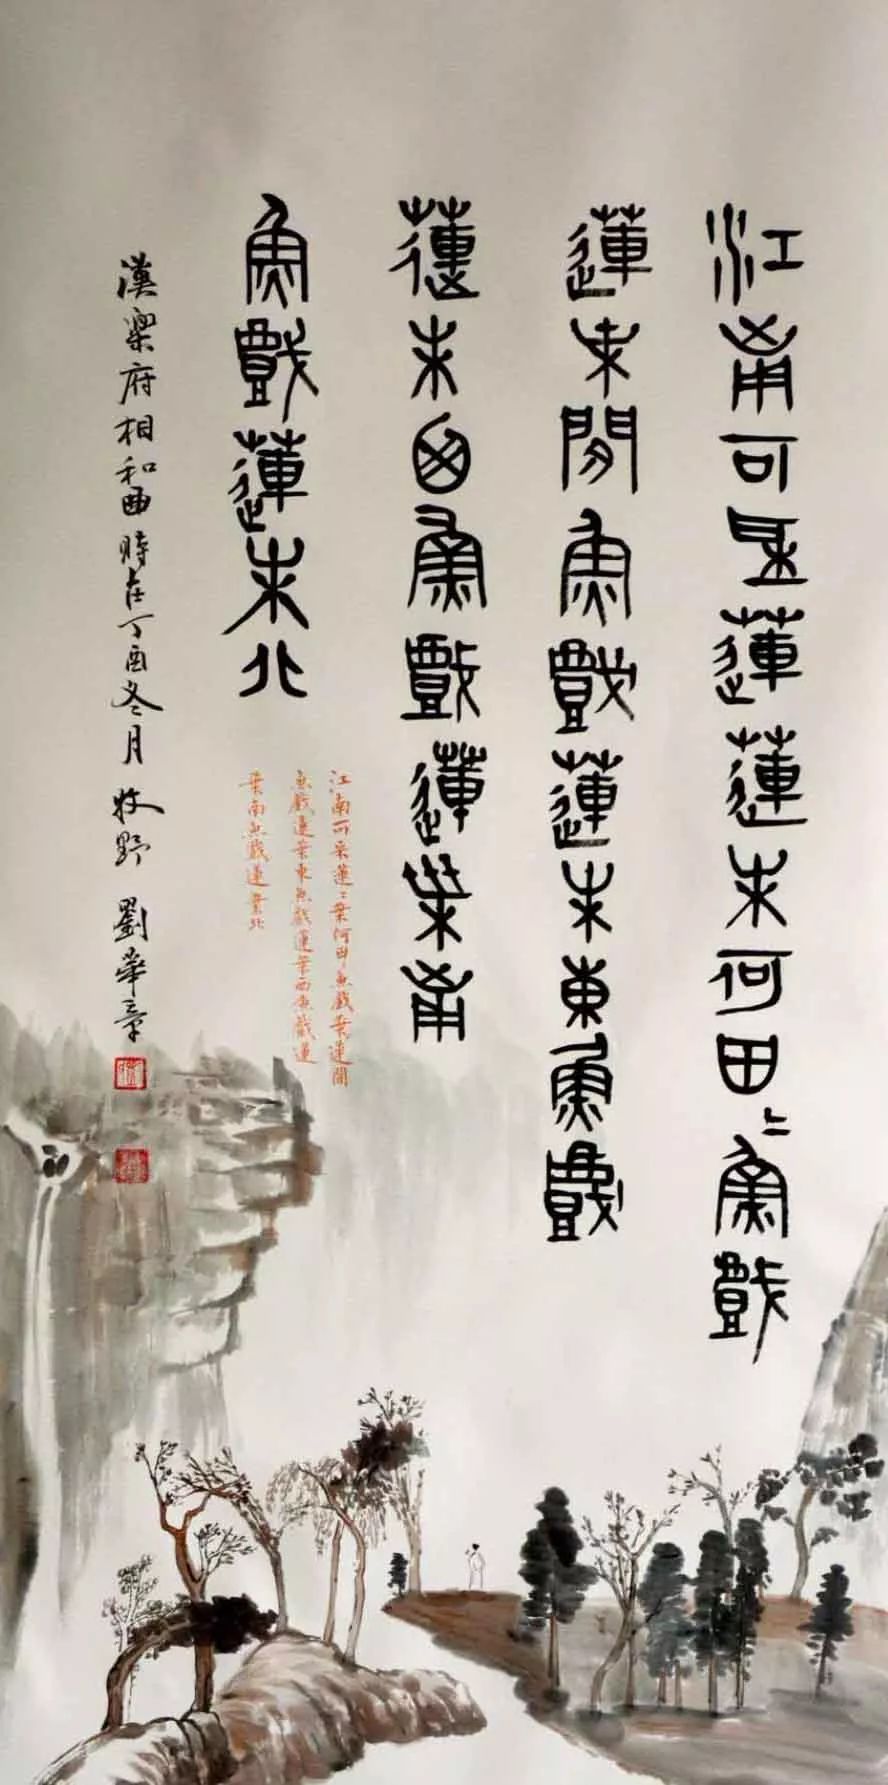 江南可采蓮蓮葉何田〻魚戲
蓮葉間魚戲蓮葉東魚戲
蓮葉西魚戲蓮葉南
魚戲蓮葉北
江南可采蓮〻葉何田〻魚戲葉蓮間
魚戲蓮葉東魚戲蓮葉西魚戲蓮
葉南魚戲蓮葉北
漢樂府相和曲時在丁酉冬月牧野劉華章